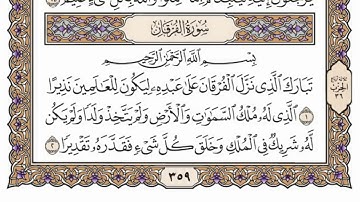 سُورَةُ الفُرْقَانِ
بِسْمِ ٱللَّهِ ٱلرَّحْمَٰنِ ٱلرَّحِيمِ
تَبَارَكَ ٱلَّذِى نَزَّلَ ٱلْفُرْقَانَ عَلَىٰ عَبْدِهِۦ لِيَكُونَ لِلْعَٰلَمِينَ نَذِيرًا
١ ٱلَّذِى لَهُۥ مُلْكُ ٱلسَّمَٰوَٰتِ وَٱلْأَرْضِ وَلَمْ يَتَّخِذْ وَلَدًا وَلَمْ يَكُن
لَّهُۥ شَرِيكٌ فِى ٱلْمُلْكِ وَخَلَقَ كُلَّ شَىْءٍ فَقَدَّرَهُۥ تَقْدِيرًا ٢
الحزب
٣٦
٣٥٩